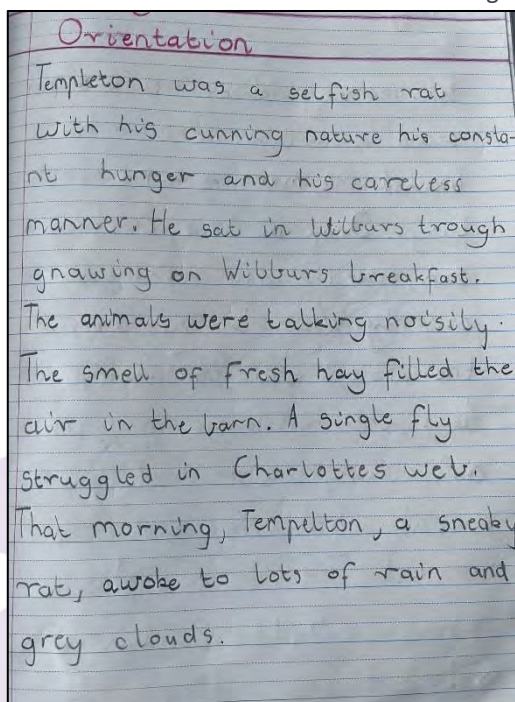 Orientation
Templeton was a selfish rat
with his cunning nature his consta-
nt hunger and his careless
manner. He sat in Wilburs trough
gnawing on Wilburs breakfast.
The animals were talking noisily.
The smell of fresh hay filled the
air in the barn. A single fly
struggled in Charlottes web.
That morning, Tempelton, a sneaky
rat, awoke to lots of rain and
grey clouds.